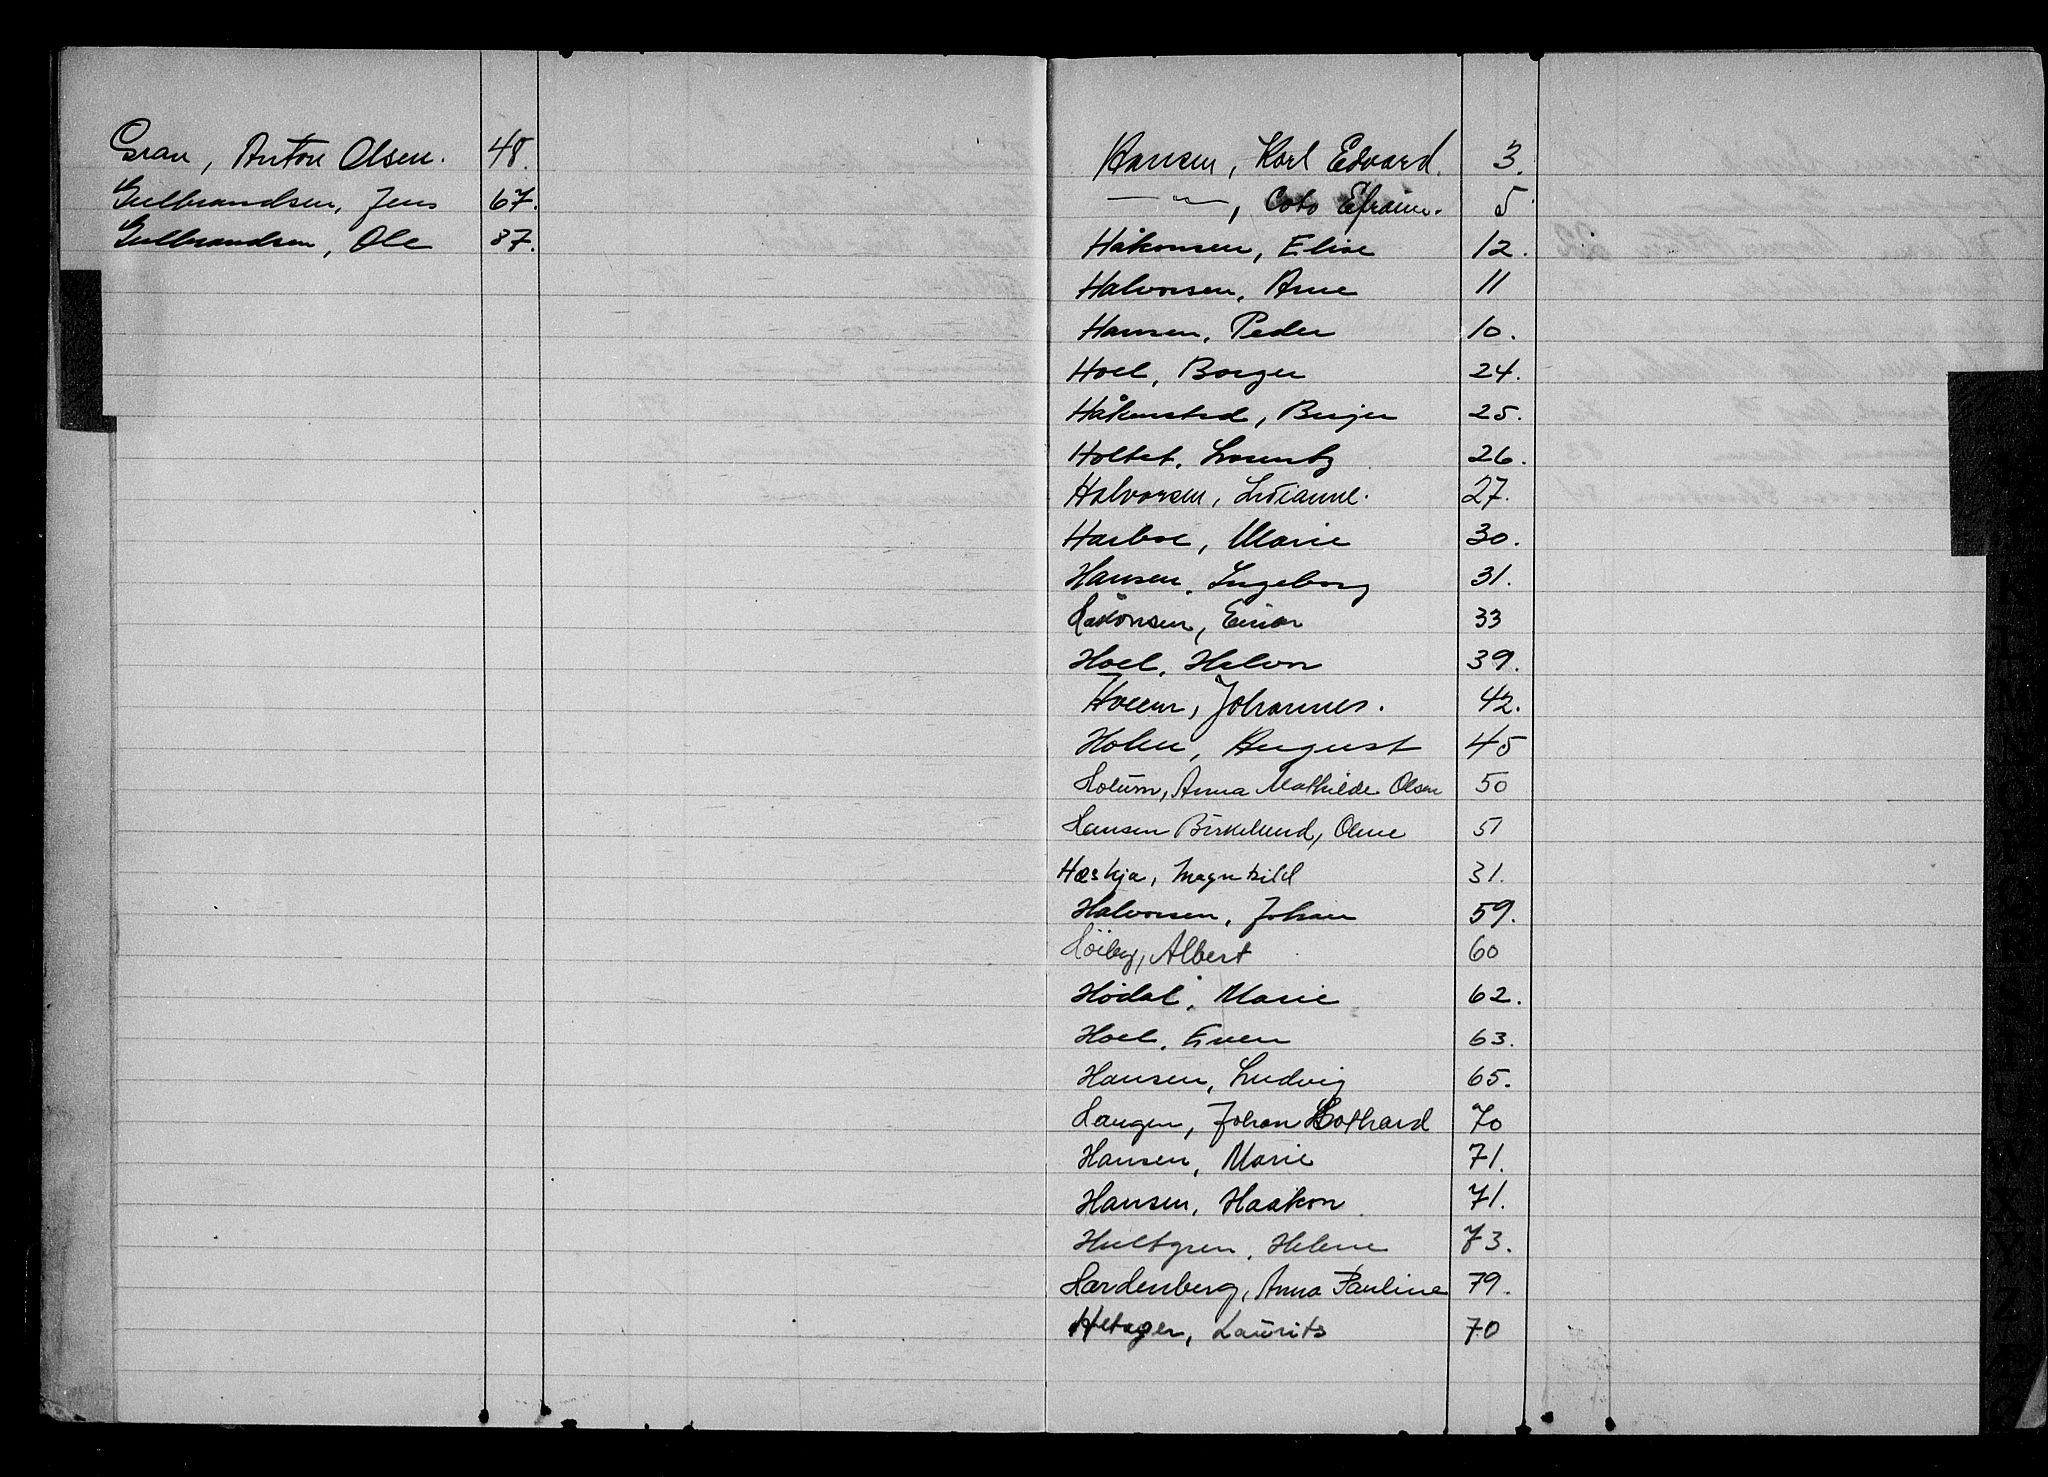 Gran, Anton Olsen. 48.
Gulbrandsen, Jens 67.
Gulbrandsen, Ole 87.
Hansen, Karl Edvard. 3.
—"—, Efraim. 5
Håkonsen, Elise 12.
Halvorsen, Arne 11
Hansen, Peder 10.
Hoel, Borger 24.
Håkenstad, Birger 25.
Holtet, Lorentz 26.
Halvorsen, 27.
Harboe, Marie 30.
Hansen, Ingeborg 31.
Håkonsen, Einar 33
Hoel, Halvor 39.
Hveem, Johannes. 42.
Holen, August 45
Holum, Anna Mathilde Olsen 50
Hansen Birkelund, Oline 51
Hæskja, Magnhild 31.
Halvorsen, Johan 59.
Höiby, Albert 60
Hødal, Marie 62.
Hoel, Even 63.
Hansen, Ludvig 65.
Haugen, Johan Lothard 70
Hansen, Marie 71.
Hansen, Haakon 71.
Hultgren, Helene 73.
Hardenberg, Anna Pauline 79.
Hetager, Laurits 70